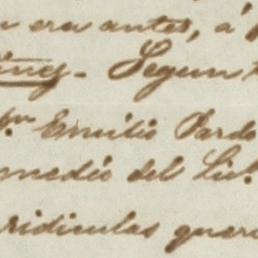 era antes, á
Segun
Emilio Pardo
medio del Lic.
ridiculas quer